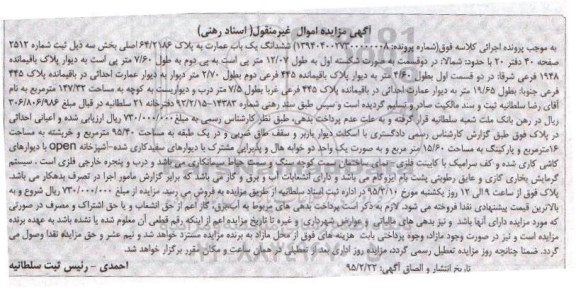 آگهی مزایده اموال غیرمنقول( اسناد رهنی)
به موجب پرونده اجرائی کلاسه فوق(شماره پرونده: ۱۳۹۴۰۴۰۰۲۷۳۰۰۰۰۰۰۸) ششدانگ یک باب عمارت به پلاک ۶۴/۲۱۸۶ اصلی بخش سه ذیل ثبت شماره ۲۵۱۲
صفحه ۴۰ دفتر ۲۰ با حدود: شمالا، در دوقسمت به صورت شکسته اول به طول ۱۲/۰۷ متر پی است به پی دوم به طول ۷/۶۰ متر پی است به پلاک باقیمانده
۱۹۴۸ فرعی شرقا: در دو قسمت اول بطول ۲/۶۰ متر به دیوار پلاک باقیمانده ۴۴۵ فرعی دوم بطول ۲/۷۰ متر دیوار به دیوار عمارت احداثی در باقیمانده پلاک ۴۴۵
فرعی جنوبا: بطول ۱۹/۶۵ متر به دیوار عمارت احداثی در باقیمانده پلاک ۴۴۵ فرعی غربا بطول ۷/۵ متر درب و دیواریست به کوچه به مساحت ۱۴۷/۳۲ مترمربع به نام
آقای رضا سلطانیه ثبت و سند مالکیت صادر و تسلیم گردیده است و سپس طبق سند رهنی شماره ۱۴۳۸۳-۹۲/۲/۱۵ دفترخانه ۲۱ سلطانیه در قبال مبلغ ۳۰۶/۸۰۶/۹۸۶
ریال در رهن بانک ملت شعبه سلطانیه قرار گرفته و به علت عدم پرداخت بدهی، طبق نظر کارشناس رسمی به مبلغ ۷۳۰/۰۰۰/۰۰۰ ریال ارزیابی شده و اعیانی احداثی
در پلاک فوق طبق گزارش کارشناس رسمی دادگستری با اسکلت دیوار باربر و سقف طاق ضربی و در یک طبقه به مساحت ۹۵/۴۰ مترمربع و خرپشته به مساحت
۱۶مترمربع و پارکینگ به مساحت ۱۵/۶۰ متر مربع و به صورت یک واحد دو خوابه هال و پذیرایی مشترک با دیوارهای سفیدکاری شده-آشپزخانه open با دیوارهای
کاشی کاری شده و کف سرامیک با کابینت فلزی-نمای ساختمان سمت کوچه سنگ و سمت حیاط سیمانکاری می‌باشد و درب و پنجره خارجی فلزی است. سیستم
گرمایش بخاری گازی و عایق رطوبتی پشت بام ایزوگام می باشد و دارای انشعابات آب و برق و گاز می باشد که برابر گزارش مامور اجرا در تصرف بدهکار می باشد.
پلاک فوق از ساعت ۹ الی ۱۲ روز یکشنبه مورخ ۹۵/۳/۱۰ در اداره ثبت اسناد سلطانیه از طریق مزایده به فروش می رسد. مزایده از مبلغ ۷۳۰/۰۰۰/۰۰۰ ریال شروع و به
بالاترین قیمت پیشنهادی نقدا فروخته می شود. لازم به ذکر است پرداخت بدهی های مربوط به آب،برق، گاز اعم از حق انشعاب و یا حق اشتراک و مصرف در صورتی
که مورد مزایده دارای آنها باشد و نیز بدهی های مالیاتی و عوارض شهرداری و غیره تا تاریخ مزایده اعم از اینکه رقم قطعی آن معلوم شده یا نشده باشد به عهده برنده
مزایده است و نیز در صورت وجود مازاد، وجوه پرداختی بابت هزینه های فوق از محل مازاد به برنده مزایده مسترد خواهد شد و نیم عشر و حق مزایده نقدا وصول می
گردد. ضمنا چنانچه روز مزایده تعطیل رسمی گردد، مزایده روز اداری بعد از تعطیلی در همان ساعت و مکان مقرر برگزار خواهد شد.
تاریخ انتشار و الصاق آگهی: ۹۵/۲/۲۲ احمدی - رئیس ثبت سلطانیه